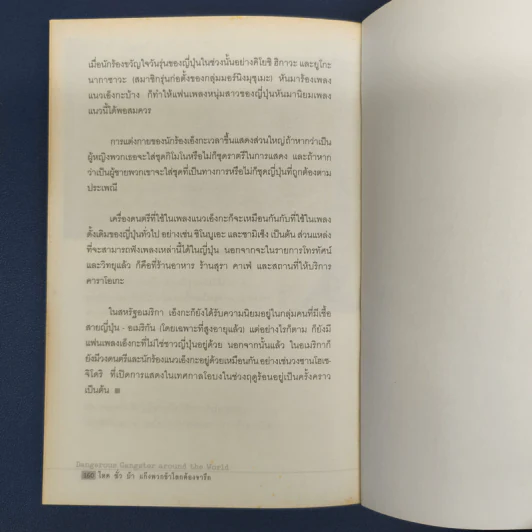 เมื่อนักร้องขวัญใจวัยรุ่นของญี่ปุ่นในช่วงนั้นอย่างคิโยชิ ฮิกาวะ และยูโกะ
นากาซาวะ (สมาชิกรุ่นก่อตั้งของกลุ่มมอร์นิงมุซุเมะ) หันมาร้องเพลง
แนวเอ็งกะบ้าง ก็ทำให้แฟนเพลงหนุ่มสาวของญี่ปุ่นหันมานิยมเพลง
แนวนี้ได้พอสมควร
การแต่งกายของนักร้องเอ็งกะเวลาขึ้นแสดงส่วนใหญ่ถ้าหากว่าเป็น
ผู้หญิงพวกเธอจะใส่ชุดกิโมโนหรือไม่ก็ชุดราตรีในการแสดง และถ้าหาก
ว่าเป็นผู้ชายพวกเขาจะใส่ชุดที่เป็นทางการหรือไม่ก็ชุดญี่ปุ่นที่ถูกต้องตาม
ประเพณี
เครื่องดนตรีที่ใช้ในเพลงแนวเอ็งกะก็จะเหมือนกันกับที่ใช้ในเพลง
ดั้งเดิมของญี่ปุ่นทั่วไป อย่างเช่น ชิโนบูเอะ และชามิเซ็ง เป็นต้น ส่วนแหล่ง
ที่จะสามารถฟังเพลงเหล่านี้ได้ในญี่ปุ่น นอกจากจะในรายการโทรทัศน์
และวิทยุแล้ว ก็คือที่ร้านอาหาร ร้านสุรา คาเฟ่ และสถานที่ให้บริการ
คาราโอเกะ
ในสหรัฐอเมริกา เอ็งกะก็ยังได้รับความนิยมอยู่ในกลุ่มคนที่มีเชื้อ
สายญี่ปุ่น - อเมริกัน (โดยเฉพาะที่สูงอายุแล้ว) แต่อย่างไรก็ตาม ก็ยังมี
แฟนเพลงเอ็งกะที่ไม่ใช่ชาวญี่ปุ่นอยู่ด้วย นอกจากนั้นแล้ว ในอเมริกาก็
ยังมีวงดนตรีและนักร้องแนวเอ็งกะอยู่ด้วยเหมือนกัน อย่างเช่นวงซานโฮเซ-
ชิโดริ ที่เปิดการแสดงในเทศกาลโอบงในช่วงฤดูร้อนอยู่เป็นครั้งคราว
เป็นต้น
Dangerous Gangster around the World
โหด ชั่ว บ้า แก๊งนรกล้าโลกต้องจารึก